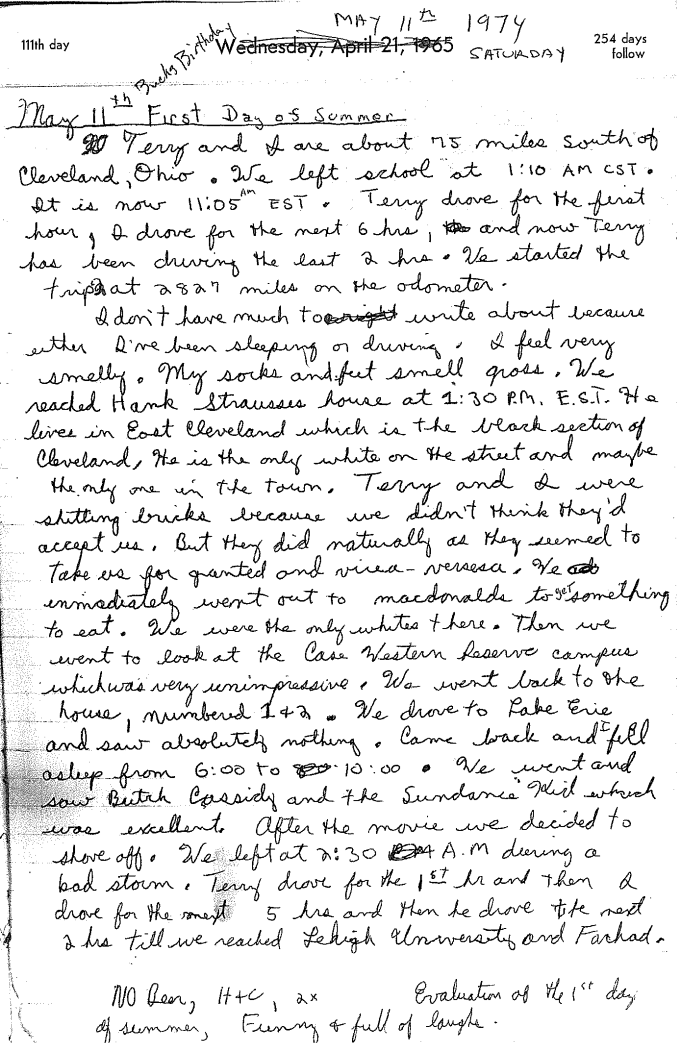 MAY 11th 1974
111th day
Wednesday, April 21, 1965
SATURDAY
254 days
follow
Bucks Birthday
May 11th First Day of Summer
Terry and I are about 75 miles South of
Cleveland, Ohio. We left school at 1:10 AM CST.
It is now 11:05 AM EST. Terry drove for the first
hour, I drove for the next 6 hrs, and now Terry
has been driving the last 2 hrs. We started the
trip at 2827 miles on the odometer.
I don't have much to write about because
either I've been sleeping or driving. I feel very
smelly. My socks and feet smell gross. We
reached Hank Strausses house at 1:30 P.M. E.S.T. He
lives in East Cleveland which is the black section of
Cleveland, He is the only white on the street and maybe
the only one in the town. Terry and I were
shitting bricks because we didn't think they'd
accept us. But they did naturally as they seemed to
take us for granted and virca-versesa. We
immediately went out to macdonalds to get something
to eat. We were the only whites there. Then we
went to look at the Case Western Reserve campus
which was very unimpressive. We went back to the
house, numbered 1+2. We drove to Lake Erie
and saw absolutely nothing. Came back and I fell
asleep from 6:00 to 10:00. We went and
saw Butch Cassidy and the Sundance Kid which
was excellent. After the movie we decided to
shove off. We left at 2:30 A.M during a
bad storm. Terry drove for the 1st hr and then I
drove for the next 5 hrs and then he drove the next
2 hrs till we reached Lehigh University and Farhad.
NO Beer, H+C, 2x Evaluation of the 1st day
of summer, Funny & full of laughs.